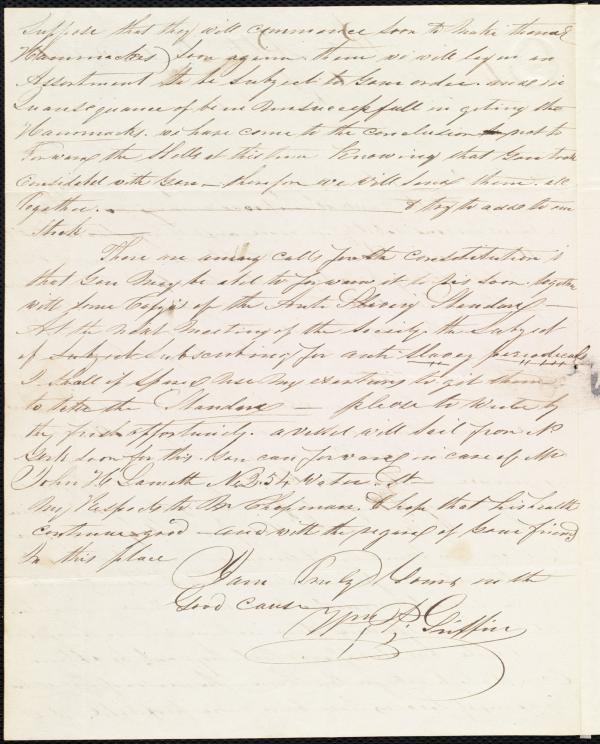 Suppose that they will commence soon to make these
Hammacks soon again then we will lay in an
Assortment to be subject to your order and in
Quansequance of been unsuccessfull in geting the
Hammocks. we have come to the conclusion not to
Forward the Shells at this time knowing that you
consideded with Gean therefore we will send them all
togather. & try to add to our
Stock
There are many calls for the constitution's
that you may be abel to forward it to us soon. togather
with some Copy's of the Anti Slavery Standard
At the next Meeting of the Society the Subject
of Subscribing for anti Slavey periodicals
I shall if spard use my exertions to git them
to take the Standard — please to write by
the first oppertunity. a vessel will sail from N
York soon for this. you can forward in care of Mr
John H Lameth No. 54 Water St
My Respects to Mr Chapman. I hope that his health
continue good — and with the regard of your friend
In this place
I am Truly Yours in the
Good cause
Wm P. Griffin